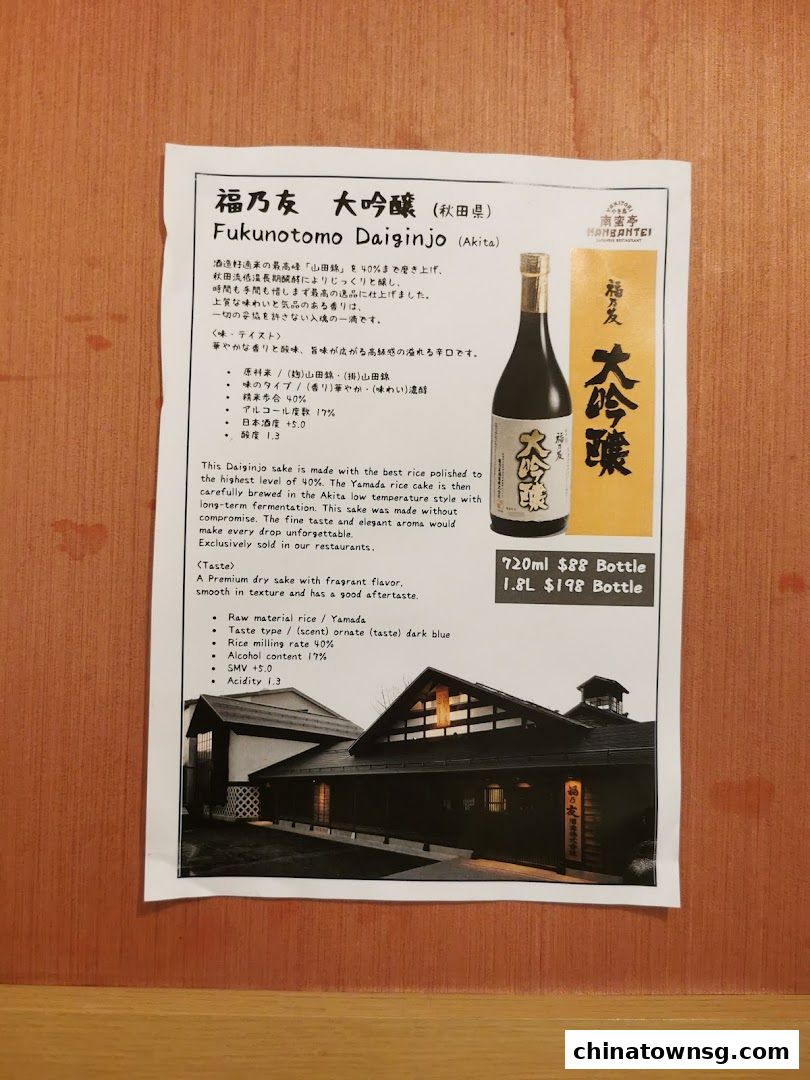 福乃友 大吟醸 (秋田県)
Fukunotomo Daiginjo (Akita)
YAKITORI
やき鳥
南蛮亭
NANBANTEI
JAPANESE RESTAURANT
酒造好適米の最高峰「山田錦」を40%まで磨き上げ、
秋田流低温長期醗酵によりじっくりと醸し、
時間も手間も惜しまず最高の逸品に仕上げました。
上質な味わいと気品のある香りは、
一切の妥協を許さない入魂の一滴です。
〈味・テイスト〉
華やかな香りと酸味、旨味が広がる高級感の溢れる辛口です。
• 原料米 / (麹)山田錦・(掛)山田錦
• 味のタイプ / (香り)華やか・(味わい)濃醇
• 精米歩合 40%
• アルコール度数 17%
• 日本酒度 +5.0
• 酸度 1.3
福乃友
大吟醸
福乃友
大吟醸
This Daiginjo sake is made with the best rice polished to
the highest level of 40%. The Yamada rice cake is then
carefully brewed in the Akita low temperature style with
long-term fermentation. This sake was made without
compromise. The fine taste and elegant aroma would
make every drop unforgettable.
Exclusively sold in our restaurants.
720ml $88 Bottle
1.8L $198 Bottle
〈Taste〉
A Premium dry sake with fragrant flavor,
smooth in texture and has a good aftertaste.
• Raw material rice / Yamada
• Taste type / (scent) ornate (taste) dark blue
• Rice milling rate 40%
• Alcohol content 17%
• SMV +5.0
• Acidity 1.3
福乃友酒造株式会社
chinatownsg.com